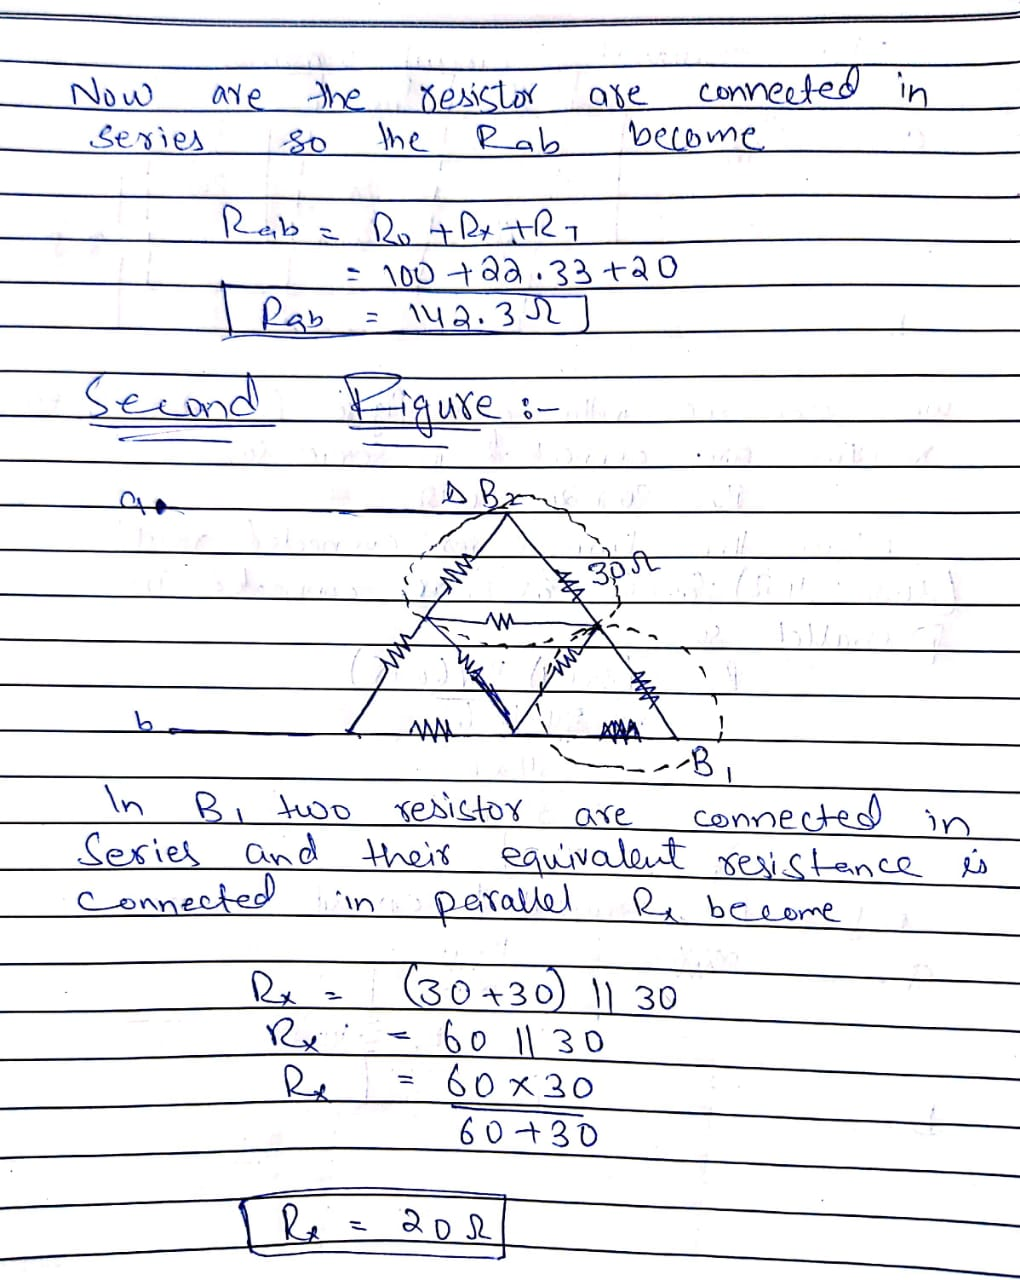 Now are the resistor are connected in
series so the Rab become
Rab = R0 + Rx + RT
= 100 + 22.33 + 20
Rab = 142.3 Ω
Second Figure :-
a
Δ B2
30Ω
b
B1
In B1 two resistor are connected in
Series and their equivalent resistance is
connected in parallel Rx become
Rx = (30+30) || 30
Rx = 60 || 30
Rx = 60 x 30
60+30
Rx = 20 Ω